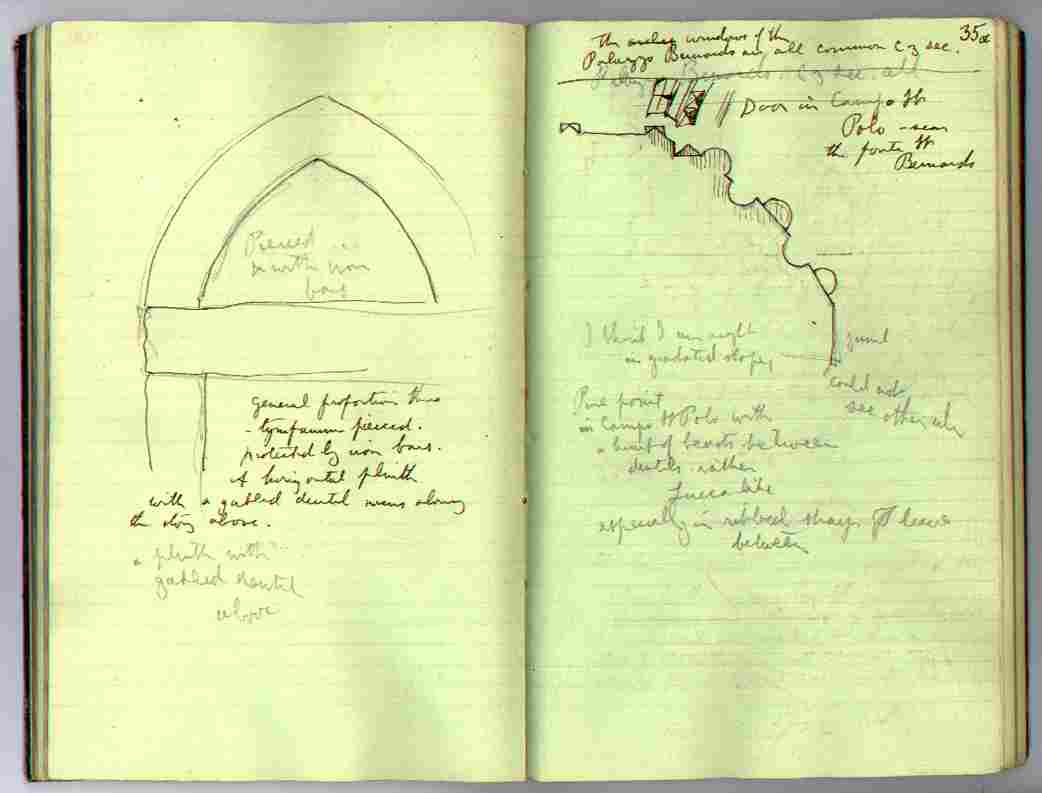 Pierced
with iron
bars
general proportion thus
- tympanum pierced.
protected by iron bars.
A horizontal plinth
with a gabled dentil runs along
the story above.
a plinth with
gabled dentil
above
35a
The windows of the
Palazzo Bernardo are all common C 3 sec.
Bernardo C 3 sec. all
Door in Campo St
Polo - near
the ponte St
Bernardo
I think I am right
in gradated slope,
could not
see other side
Fine point
in Campo St Polo with
a knit of beasts between
dentils rather
Lucca like
especially in ribbed shape of leaves
between